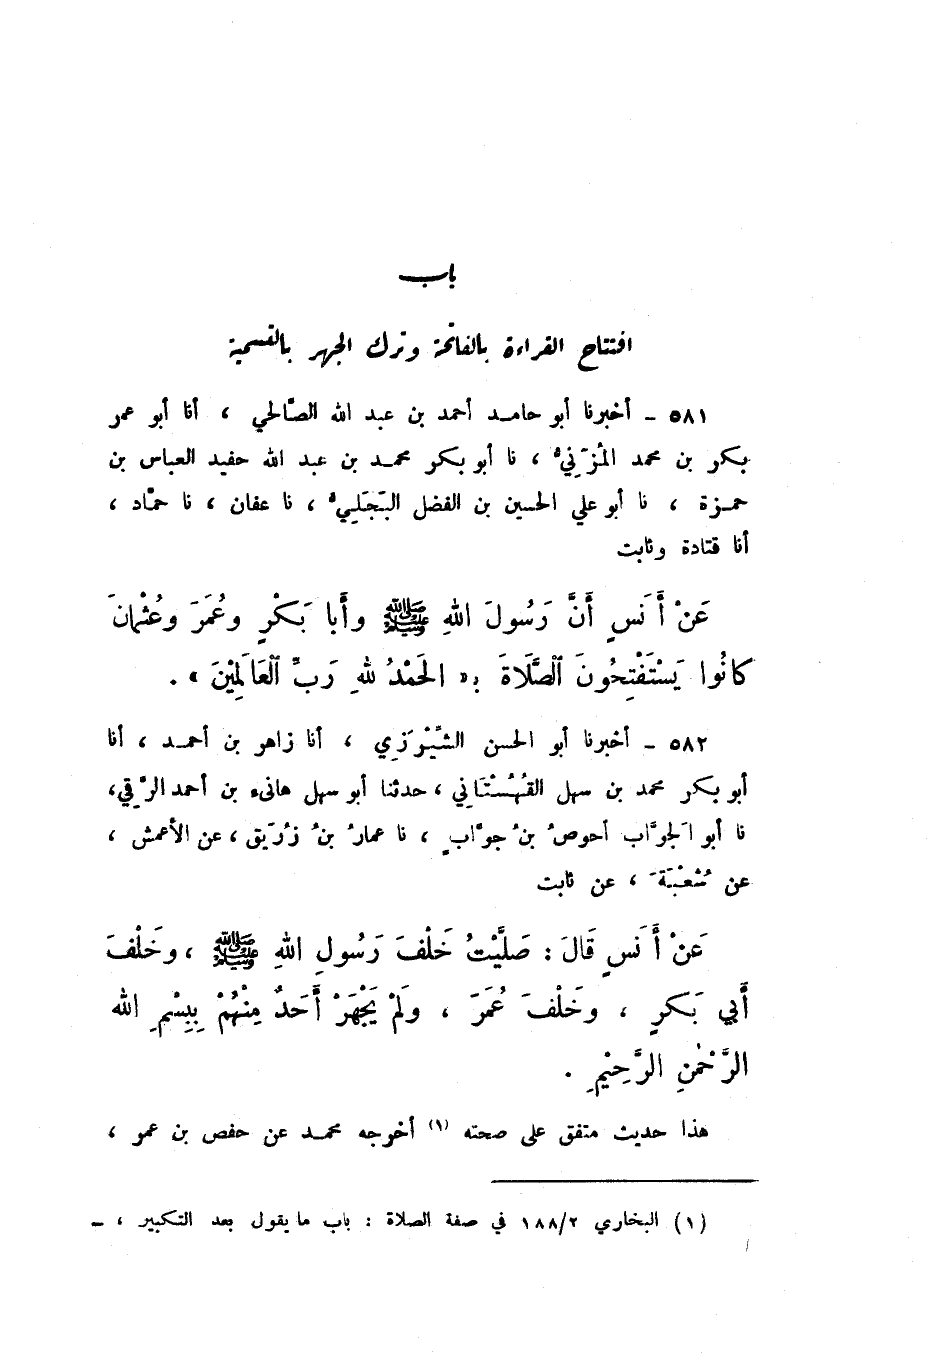 باب
افتتاح القراءة بالفاتحة وترك الجهر بالتسمية
٥٨١ - أخبرنا أبو حامد أحمد بن عبد الله الصّالحي ، أنا أبو عمر
بكر بن محمد المُزَنيُّ ، نا أبو بكر محمد بن عبد الله حفيد العباس بن
حمزة ، نا أبو علي الحسين بن الفضل البَجَليُّ ، نا عفان ، نا حمّاد ،
أنا قتادة وثابت
عَنْ أَنَسٍ أَنَّ رَسُولَ اللهِ ﷺ وأَبا بَكْرٍ وعُمَرَ وعُثْمانَ
كانُوا يَسْتَفْتِحُونَ الصَّلَاةَ بِـ« الحَمْدُ للهِ رَبِّ العَالَمِيْنَ » .
٥٨٢ - أخبرنا أبو الحسن الشِّيْرَزي ، أنا زاهر بن أحمد ، أنا
أبو بكر محمد بن سهل القُهُسْتَاني ، حدثنا أبو سهل هانىء بن أحمد الرَّقي،
نا أبو الجوَّاب أحوصُ بنُ جوَّابٍ ، نا عمارُ بنُ زُرَيق ، عن الأعمش ،
عن شُعْبَةَ ، عن ثابت
عَنْ أَنَسٍ قَالَ : صَلَّيْتُ خَلْفَ رَسُولِ اللهِ ﷺ ، وخَلْفَ
أَبي بَكرٍ ، وخَلْفَ عُمَرَ ، ولَمْ يَجْهَرْ أَحَدٌ مِنْهُمْ بِبِسْمِ الله
الرَّحْمنِ الرَّحِيْمِ .
هذا حديث متفق على صحته (١) أخرجه محمد عن حفص بن عمر ،
(١) البخاري ١٨٨/٢ في صفة الصلاة : باب ما يقول بعد التكبير ، -